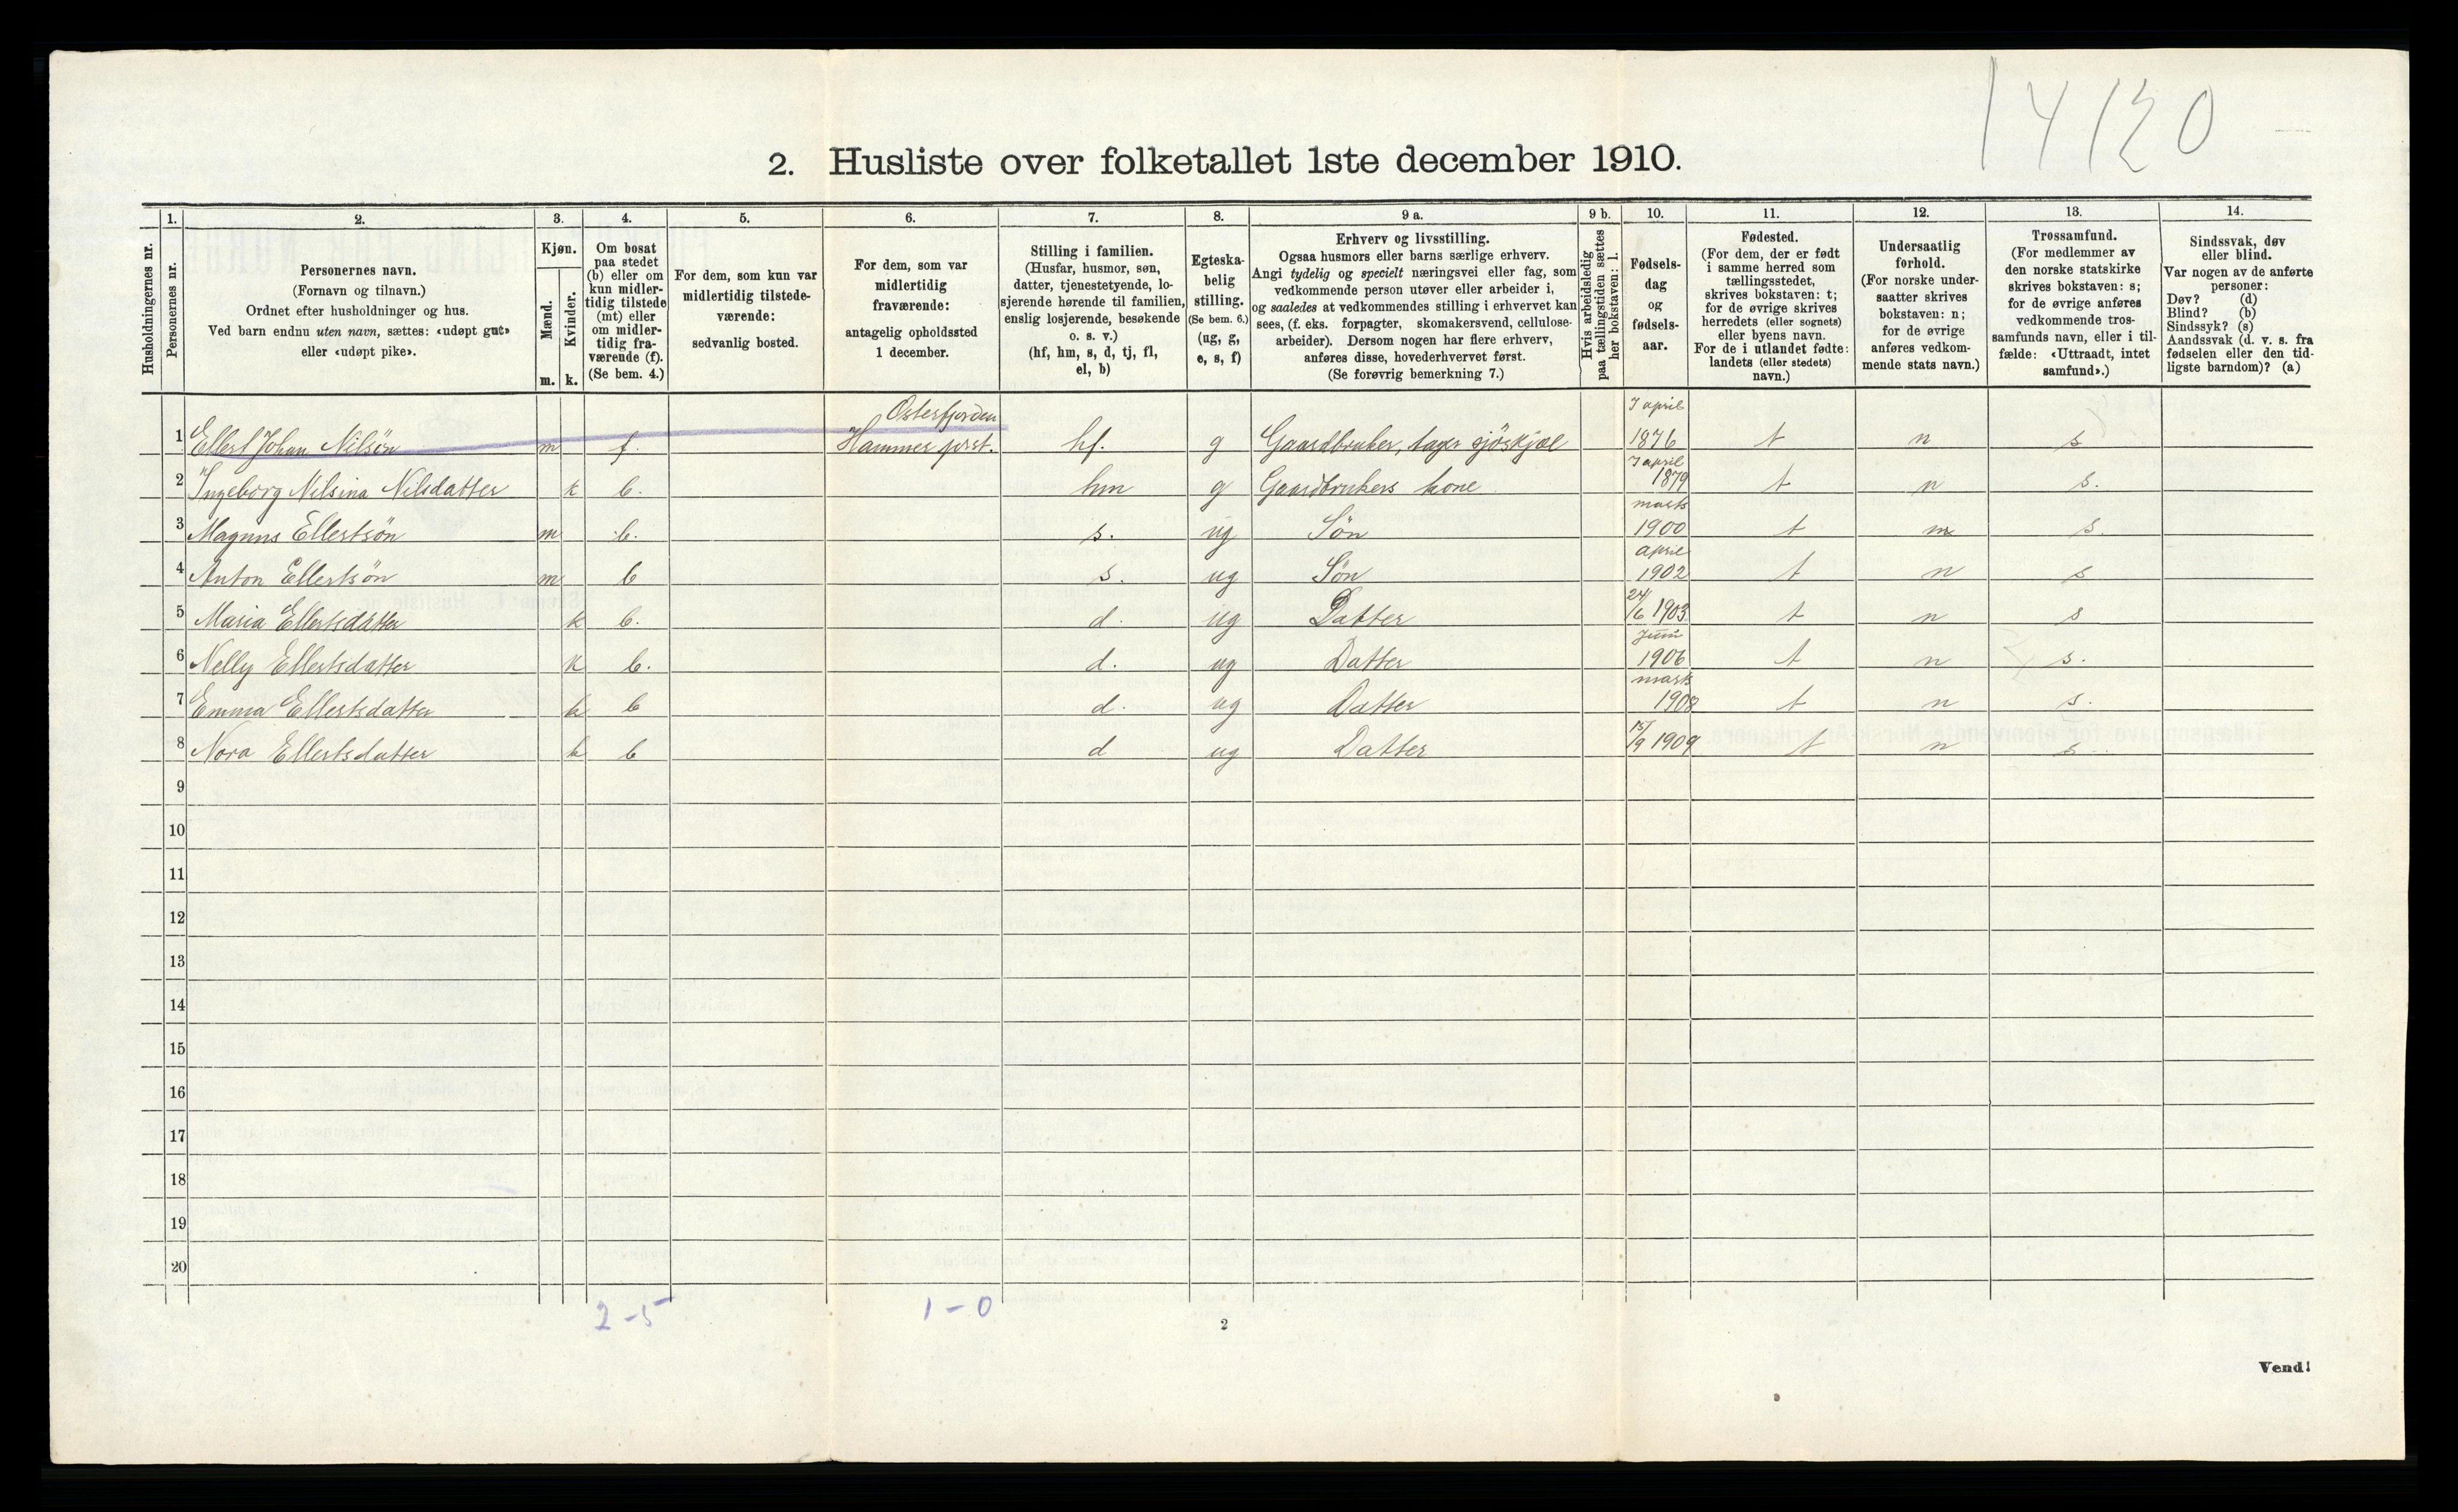 14120
2. Husliste over folketallet 1ste december 1910.
Husholdningernes nr.
1.
Personernes nr.
2.
Personernes navn.
(Fornavn og tilnavn.)
Ordnet efter husholdninger og hus.
Ved barn endnu uten navn, sættes: «udøpt gut»
eller «udøpt pike».
3.
Kjøn.
Mænd.
Kvinder.
m. k.
4.
Om bosat
paa stedet
(b) eller om
kun midler-
tidig tilstede
(mt) eller
om midler-
tidig fra-
værende (f).
(Se bem. 4.)
5.
For dem, som kun var
midlertidig tilstede-
værende:
sedvanlig bosted.
6.
For dem, som var
midlertidig
fraværende:
antagelig opholdssted
1 december.
7.
Stilling i familien.
(Husfar, husmor, søn,
datter, tjenestetyende, lo-
sjerende hørende til familien,
enslig losjerende, besøkende
o. s. v.)
(hf, hm, s, d, tj, fl,
el, b)
8.
Egteska-
belig
stilling.
(Se bem. 6.)
(ug, g,
e, s, f)
9 a.
Erhverv og livsstilling.
Ogsaa husmors eller barns særlige erhverv.
Angi tydelig og specielt næringsvei eller fag, som
vedkommende person utøver eller arbeider i,
og saaledes at vedkommendes stilling i erhvervet kan
sees, (f. eks. forpagter, skomakersvend, cellulose-
arbeider). Dersom nogen har flere erhverv,
anføres disse, hovederhvervet først.
(Se forøvrig bemerkning 7.)
9 b.
Hvis arbeidsledig
paa tællingstiden sættes
her bokstaven: l.
10.
Fødsels-
dag
og
fødsels-
aar.
11.
Fødested.
(For dem, der er født
i samme herred som
tællingsstedet,
skrives bokstaven: t;
for de øvrige skrives
herredets (eller sognets)
eller byens navn.
For de i utlandet fødte:
landets (eller stedets)
navn.)
12.
Undersaatlig
forhold.
(For norske under-
saatter skrives
bokstaven: n;
for de øvrige
anføres vedkom-
mende stats navn.)
13.
Trossamfund.
(For medlemmer av
den norske statskirke
skrives bokstaven: s;
for de øvrige anføres
vedkommende tros-
samfunds navn, eller i til-
fælde: «Uttraadt, intet
samfund».)
14.
Sindssvak, døv
eller blind.
Var nogen av de anførte
personer:
Døv? (d)
Blind? (b)
Sindssyk? (s)
Aandssvak (d. v. s. fra
fødselen eller den tid-
ligste barndom)? (a)
Osterfjorden 7 april
1 Ellert Johan Nilsön m f. Hammer prst. hf. g Gaardbruker, tager sjöskjæl 1876 t n s
7 april
2 Ingeborg Nilsina Nilsdatter k b. hm g Gaardbrukers kone 1879 t n s.
marts
3 Magnus Ellertsön m b. s. ug Sön 1900 t n s.
april
4 Anton Ellertsön m b s. ug Sön 1902 t n s
5 Maria Ellertsdatter k b. d. ug Datter 24/6 1903 t n s
juni
6 Nelly Ellertsdatter k b. d. ug Datter 1906 t n s.
marts
7 Emma Ellertsdatter k b d. ug Datter 1908 t n s.
8 Nora Ellertsdatter k b d ug Datter 15/9 1909 t n s
9
10
11
12
13
14
15
16
17
18
19
20
2-5 1-0
2
Vend!